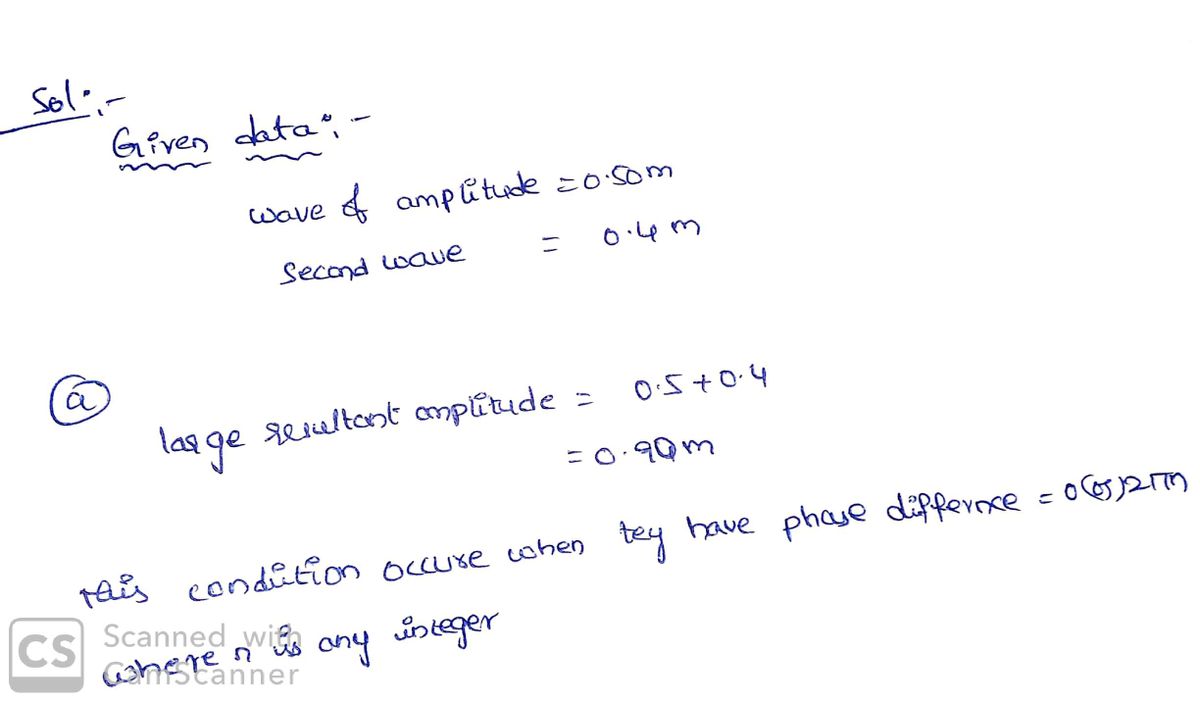 Sol:-
Given data:-
wave of amplitude = 0.50m
Second wave = 0.4 m
a
large resultant amplitude = 0.5 + 0.4
= 0.90m
this condition occure when tey have phase differnce = 0 (or) 2πn
where n is any integer
CS Scanned with
CamScanner